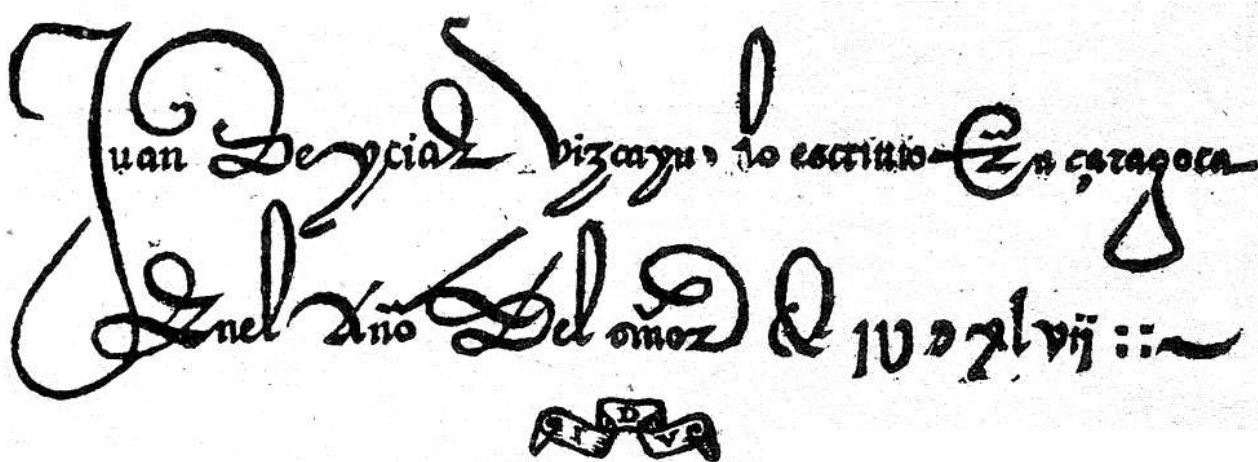 Juan De yciar vizcayno lo escriuio En çaragoça
Enel Año Del señor D IU D xlvij
I D V